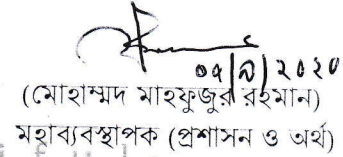 ০৭/০৯/২০২০
(মোহাম্মদ মাহফুজুর রহমান)
মহাব্যবস্থাপক (প্রশাসন ও অর্থ)